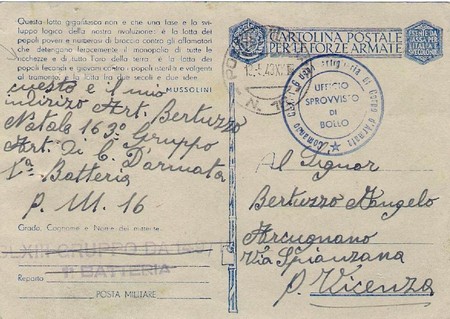 Questa lotta gigantesca non è che una fase e lo svi-
luppo logico della nostra rivoluzione: è la lotta dei
popoli poveri e numerosi di braccia contro gli affamatori
che detengono ferocemente il monopolio di tutte le
ricchezze e di tutto l'oro della terra; è la lotta dei
popoli fecondi e giovani contro i popoli isteriliti e volgenti
al tramonto, è la lotta fra due secoli e due idee.
MUSSOLINI
questo e il mio
indirizo Art. Bertuzzo
Natale 163° Gruppo
Art. Di C. D'armata
1a Batteria
P. M. 16
Grado, Cognome e Nome del mittente
LXIII GRUPPO DA
1a BATTERIA
Reparto
POSTA MILITARE
CARTOLINA POSTALE
PER LE FORZE ARMATE
ESENTE DA
TASSA PER
L'ITALIA E
SPEDIZIONE
UFFICIO
SPROVVISTO
DI
BOLLO
Al Signor
Bertuzzo Angelo
Arcugnano
Via Spianzana
P. Vicenza